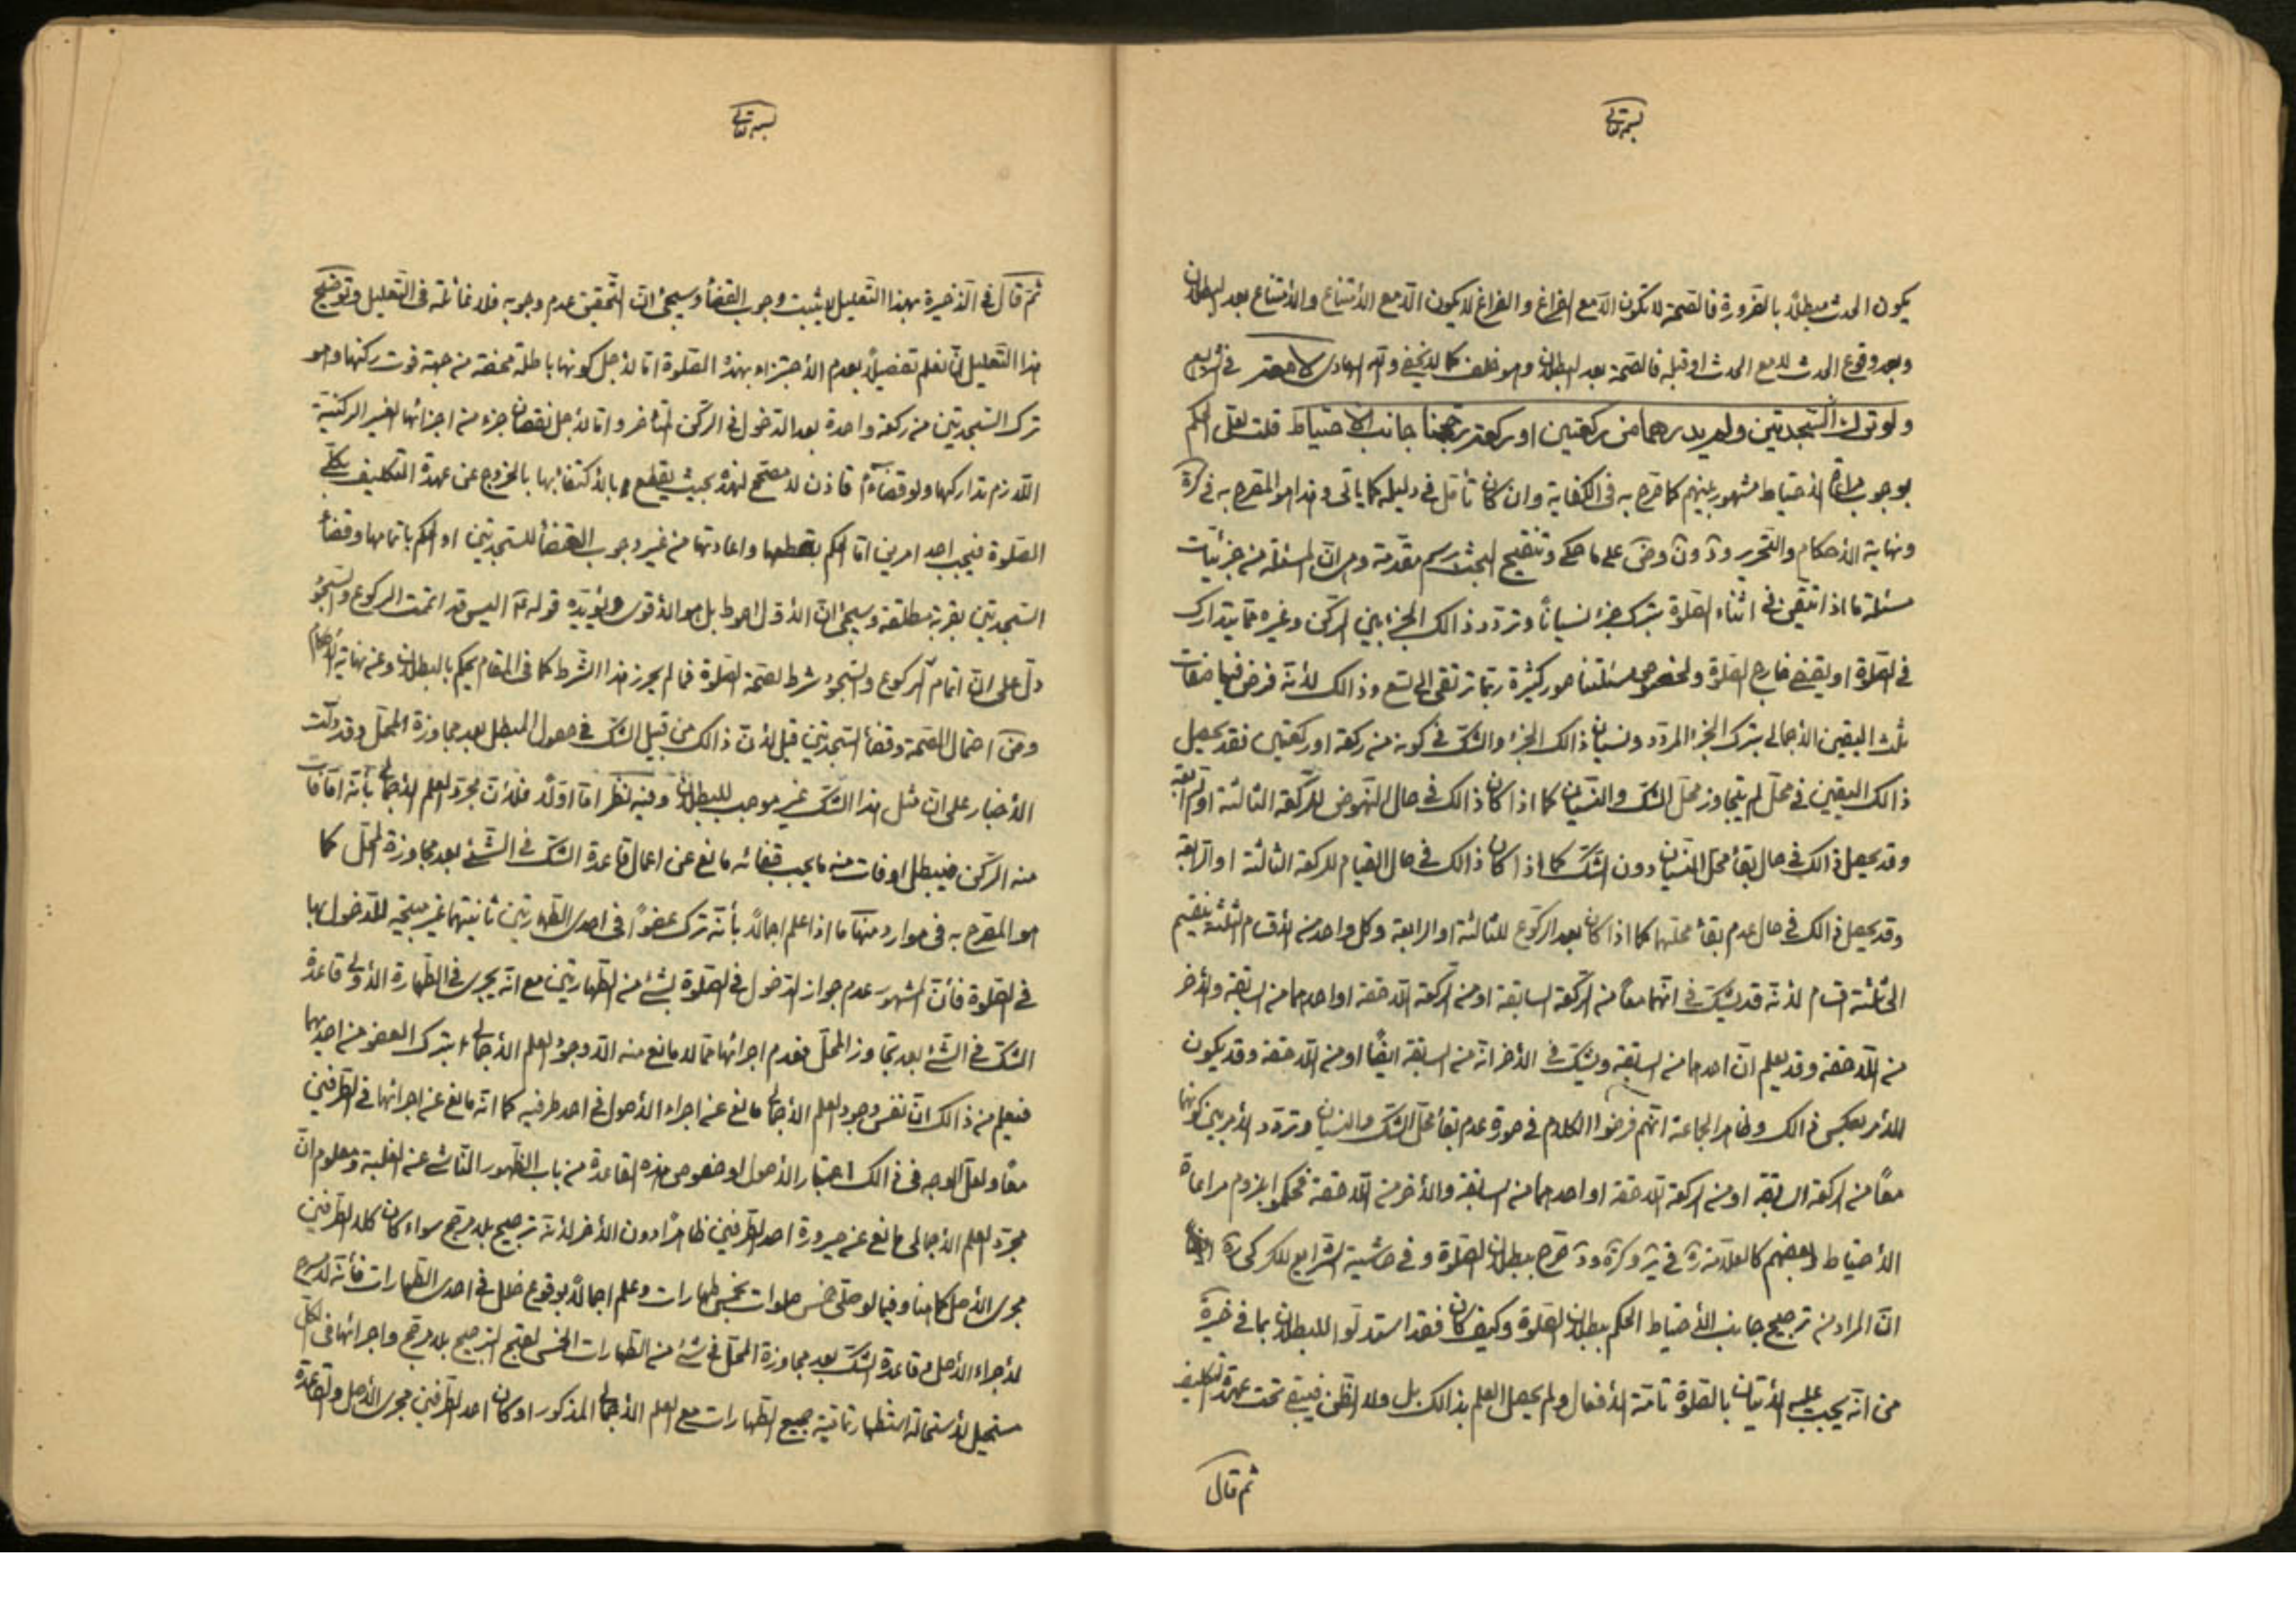 بسمه تعالى
يكون الحدث مبطلاً بالضرورة فالصحة لا تكون الّا مع الفراغ والفراغ لا يكون الّا مع الأمتناع والأمتناع بعد البطلان
وبعد وقوع الحدث لا مع الحدث او قبله فالصحة بعد البطلان وهو خلف كما لا يخفى والله الهادى
ولو ترك السّجدتين ولم يدر هما من ركعتين او ركعة رجّحنا جانب الاحتياط قلت لعلّ الحكم
بوجوب مراعاة الأحتياط مشهور بينهم كما صرّح به فى الكفاية وان كان تأمّل فى دليله كما يأتى وهذا هو المصرح به فى كرة
ونهاية الأحكام والتّحرير وعلى ما حكى وتنقيح البحث برسم مقدّمة وهى انّ المسئلة من جزئيّات
مسئلة ما اذا تيقّن فى اثناء الصّلوة بترك جزء نسياناً وتردّد ذالك الجزء بين الرّكن وغيره ممّا يتدارك
فى الصّلوة او يقضى خارج الصّلوة ولخصوص مسئلتنا صور كثيرة ربّما ترتقى الى تسع وذالك لأنّه فرض فيها صفات
ثلث اليقين الأجمالى بترك الجزء المردّد ونسيان ذالك الجزء والشّك فى كونه من ركعة او ركعتين فقد يحصل
ذالك اليقين فى محلّ لم يتجاوز محلّ الشّك والنّسيان كما اذا كان ذالك فى حال النّهوض للرّكعة الثالثة او الرّابعة
وقد يحصل ذالك فى حال بقاء محلّ النّسيان دون الشّك كما اذا كان ذالك فى حال القيام للركعة الثالثة او الرّابعة
وقد يحصل ذالك فى حال عدم بقاء محلّهما كما اذا كان بعد الركوع للثالثة او الرابعة وكلّ واحد من الأقسام الثلثة ينقسم
الى ثلثة اقسام لأنّه قد يشكّ فى انّهما معاً من الرّكعة السابقة او من الرّكعة اللّاحقة او احدهما من السّابقة والأخر
من اللّاحقة وقد يعلم انّ احدهما من السابقة ويشكّ فى الأخر انّه من السابقة ايضاً او من اللّاحقة وقد يكون
الأمر بعكس ذالك وظاهر الجماعة انّهم فرضوا الكلام فى صورة عدم بقاء محلّ الشّك والنسيان وتردّد الأمر بين كونهما
معاً من الركعة السابقة او من الركعة اللّاحقة او احدهما من السابقة والأخر من اللّاحقة فحكموا بلزوم مراعاة
الأحتياط وبعضهم كالعلّامة صرّح ببطلان الصّلوة وفى حاشية الشّرايع للكركى
انّ المراد من ترجيح جانب الأحتياط الحكم ببطلان الصّلوة وكيف كان فقد استدلّوا للبطلان بما فى خيرة
من انّه يجب عليه الأتيان بالصّلوة تامّة الأفعال ولم يحصل العلم بذالك بل ولا الظّن فيبقى تحت عهدة التّكليف
ثم قال
بسمه تعالى
ثمّ قال فى الذّخيرة بهذا التّعليل لا يثبت وجوب القضاء وسيجئ انّ التّحقيق عدم وجوبه فلا غائلة فى التّعليل وتوضيح
هذا التّعليل انّ نعلم تفصيلاً بعدم الأجتزاء بهذه الصّلوة امّا لأجل كونها باطلة محضة من جهة فوت ركنها وهو
ترك السّجدتين من ركعة واحدة بعد الدّخول فى الرّكن المتأخر وامّا لأجل نقصان جزء من اجزائها الغير الركنيّة
اللّازم تداركها ولو قضاءً فاذن لا مصحّح لهذه بحيث يقطع بالأكتفاء بها بالخروج عن عهدة التّكليف
الصّلوة فيجب احد امرين امّا الحكم بقطعها واعادتها من غير وجوب القضاء للسّجدتين او الحكم باتمامها وقضاء
السّجدتين بقربة مطلقة وسيجئ انّ الأوّل احوط بل هو الأقوى ويؤيّده قوله عليه اليس قد اتممت الركوع والسّجود
دلّ على انّ اتمام الركوع والسّجود شرط لصحّة الصّلوة فما لم يحرز هذا الشّرط كما فى المقام يحكم بالبطلان وعن نهاية الأحكام
احتمال الصّحة وقضاء السّجدتين قيل لأنّ ذالك من قبيل الشّك فى حصول المبطل بعد مجاوزة المحلّ وقد دلّت
الأخبار على انّ مثل هذا الشّك غير موجب للبطلان وفيه نظر امّا اوّلاً فلأنّ مجرّد العلم الأجمالى بأنّه امّا فات
منه الرّكن فيبطل او فات منه ما يجب قضائه مانع عن اعمال قاعدة الشّك فى الشّئ بعد مجاوزة المحلّ كما
هو المصرّح به فى موارد منها ما اذا علم اجمالاً بأنّه ترك عضواً فى احدى الطّهارتين ثانيتهما غير مبيحة للدّخول بها
فى الصّلوة فأنّ المشهور عدم جواز الدّخول فى الصّلوة بشئ من الطّهارتين مع انّه يجرى فى الطّهارة الأولى قاعدة
الشّك فى الشّئ بعد تجاوز المحلّ فعدم اجرائها ممّا لا مانع منه الّا وجود العلم الأجمالى بترك العضو من احديهما
فيعلم من ذالك انّ نفس وجود العلم الأجمالى مانع عن اجراء الأصول فى احد طرفيه كما انّه مانع عن اجرائها فى الطّرفين
معاً ولعلّ الوجه فى ذالك اعتبار الأصول او خصوص هذه القاعدة من باب الظّهور النّاشى عن الغلبة ومعلوم انّ
مجرّد العلم الأجمالى مانع عن صيرورة احد الطّرفين ظاهراً دون الأخر لأنّه ترجيح بلا مرجّح سواء كان كلا الطّرفين
مجرى الأصل كما هنا وفيما لو صلّى خمس صلوات بخمس طهارات وعلم اجمالاً بوقوع خلل فى احدى الطّهارات فأنّه لا مسرح
لأجراء الأصل وقاعدة الشّك بعد مجاوزة المحلّ فى شئ من الطّهارات الخمس لقبح الترجيح بلا مرجّح واجرائها فى الكلّ
مستحيل لأستحالة استظهار تماميّة جميع الطّهارات مع العلم الأجمالى المذكور او كان احد الطّرفين مجرى الأصل والقاعدة